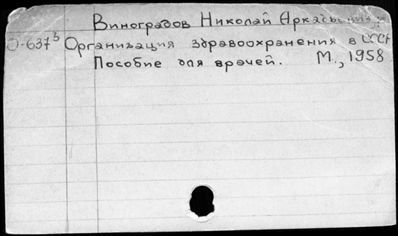 Виноградов Николай Аркадьевич
О-637³ Организация здравоохранения в СССР
Пособие для врачей. М., 1958